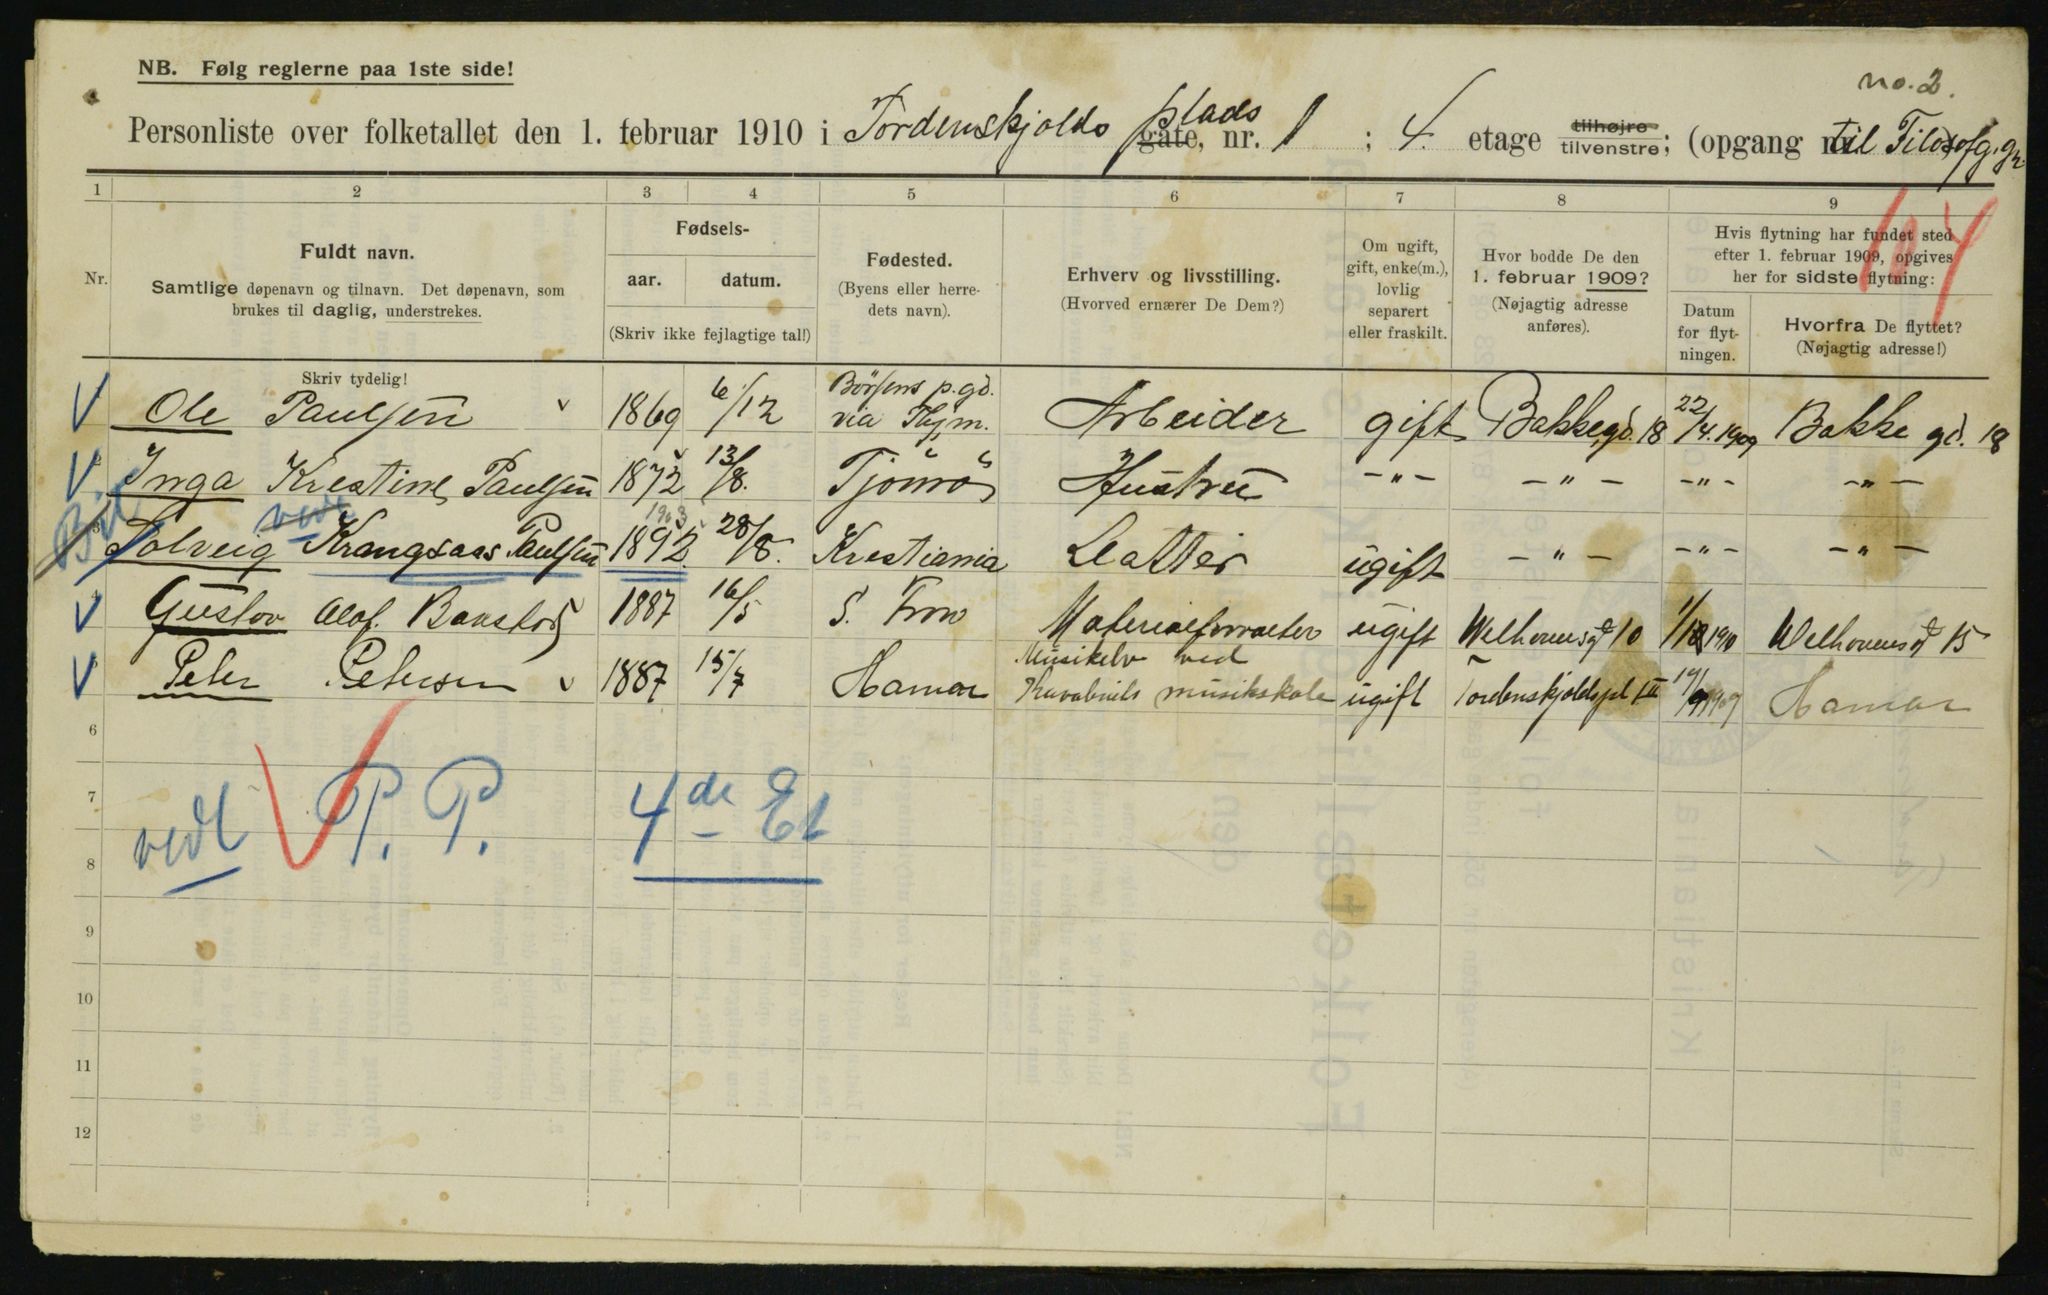 no. 2.
NB. Følg reglerne paa 1ste side!
Personliste over folketallet den 1. februar 1910 i Tordenskjolds plads gate, nr. 1 ; 4. etage tilhøjre tilvenstre; (opgang til Filosofg. gr.
1 2 3 4 5 6 7 8 9
Nr.
Fuldt navn.
Samtlige døpenavn og tilnavn. Det døpenavn, som
brukes til daglig, understrekes.
Fødsels-
aar. datum.
(Skriv ikke fejlagtige tal!)
Fødested.
(Byens eller herre-
dets navn).
Erhverv og livsstilling.
(Hvorved ernærer De Dem?)
Om ugift,
gift, enke(m.),
lovlig
separert
eller fraskilt.
Hvor bodde De den
1. februar 1909?
(Nøjagtig adresse
anføres).
Hvis flytning har fundet sted
efter 1. februar 1909, opgives
her for sidste flytning:
Datum
for flyt-
ningen.
Hvorfra De flyttet?
(Nøjagtig adresse!)
Skriv tydelig!
Ole Paulsen 1869 6/12 Börsens p.gd. via Thjm. Arbeider gift Bakkegd. 18 22/4. 1909 Bakke gd. 18
Inga Krestine Paulsen 1872 13/8. Tjömö Hustru -"- -"- -"- -"-
vedt 1903
3 Solveig Krangsaas Paulsen 1892 28/8. Krestiania Datter ugift -"- -"- -"-
Gustav Olof. 1887 16/5 S. Fron Materialforvalter ugift Welhavensgt 10 1910 Welhavensgt 15
5 Peter Petersen 1887 15/7 Hamar Musikelv ved musikskole ugift Tordenskjoldspl 1909 Hamar
6
7
vedt P. P. 4de Et
8
9
10
11
12